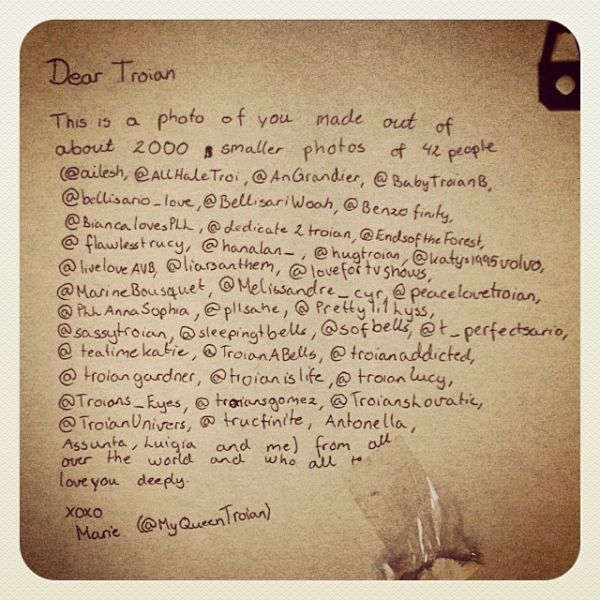 Dear Troian
This is a photo of you made out of
about 2000 smaller photos of 42 people
(@ailesh, @AllHaleTroi, @AnGrandier, @BabyTroianB,
@bellisario_love, @BellisariWoah, @Benzofinity,
@BiancalovesPLL, @dedicate2troian, @EndsoftheForest,
@flawlesstrucy, @hanalan_, @hugtroian, @katys1995volvo,
@liveloveAVB, @liarsanthem, @lovefortvshows,
@MarineBousquet, @Melissandre_cyr, @peacelovetroian,
@PLLAnnaSophia, @pllsahe, @Prettylilhyss,
@sassytroian, @sleepingtbells, @sofbells, @t_perfectsario,
@teatimekatie, @TroianABells, @troianaddicted,
@troiangardner, @troianislife, @troianlucy,
@Troians_Eyes, @troiansgomez, @TroiansLovatic,
@TroianUnivers, @trucfinite, Antonella,
Assunta, Luigia and me) from all
over the world and who all
love you deeply.
xoxo
Marie (@MyQueenTroian)